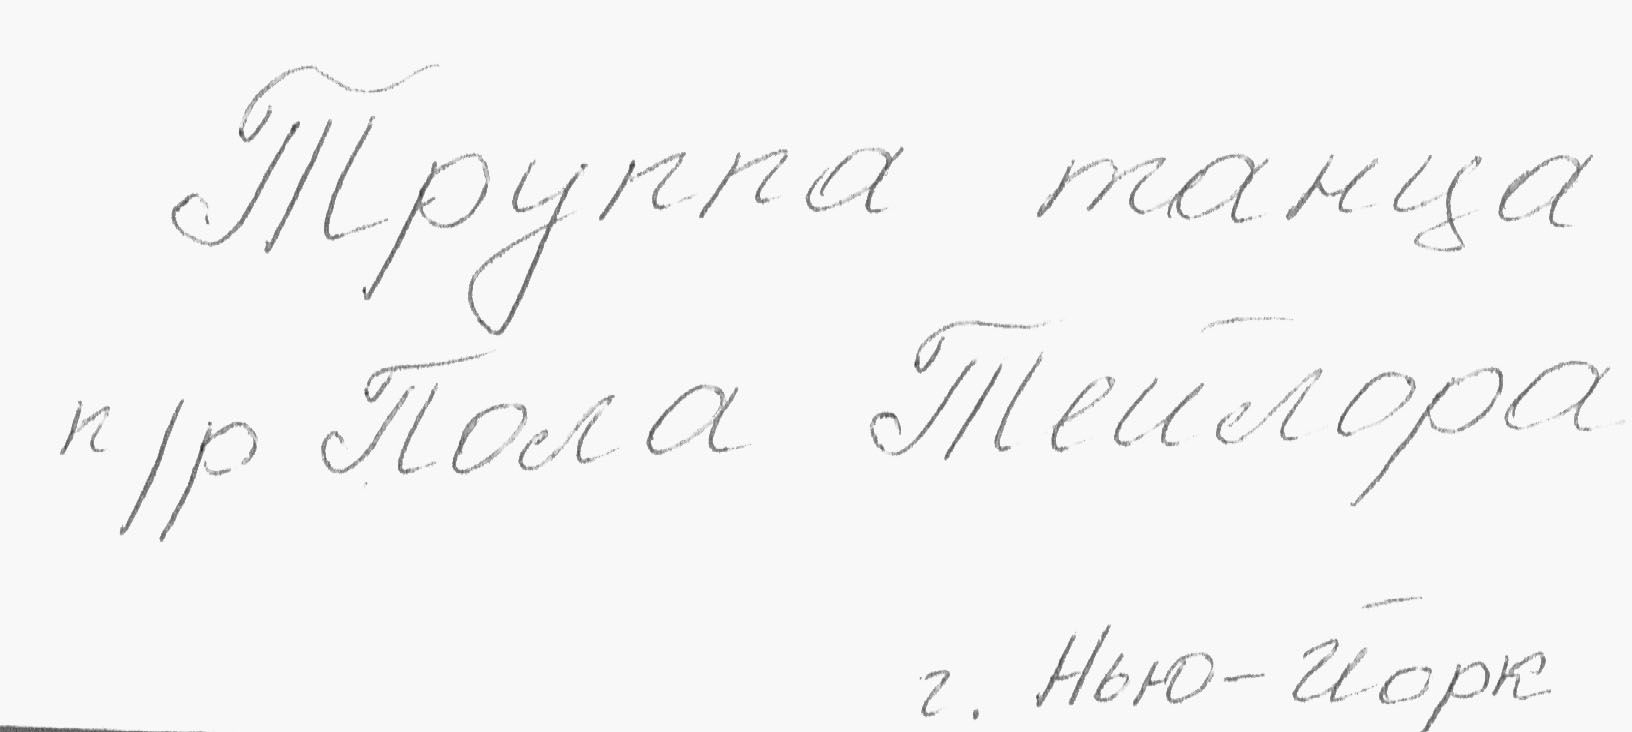 Труппа танца
п/р Пола Тейлора
г. Нью-Йорк